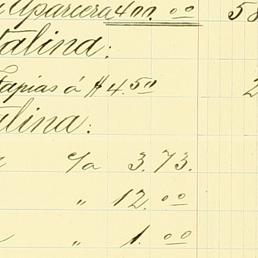 Aparcera 400. 00 58
talina:
Tapias á $4.50 2
talina:
c/a 3.73.
" 12. 00
" 1. 00